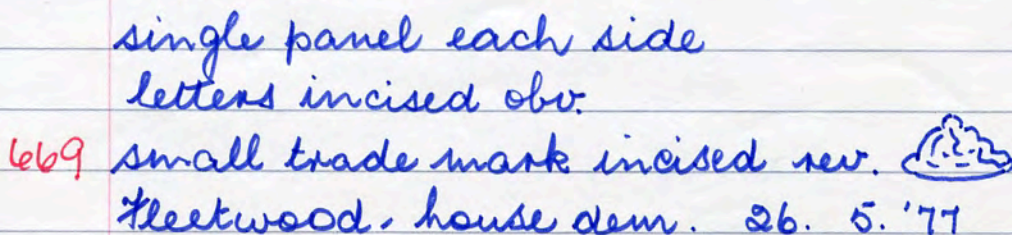 single panel each side
letters incised obv.
669 small trade mark incised rev.
Fleetwood, house dem. 26. 5. '77